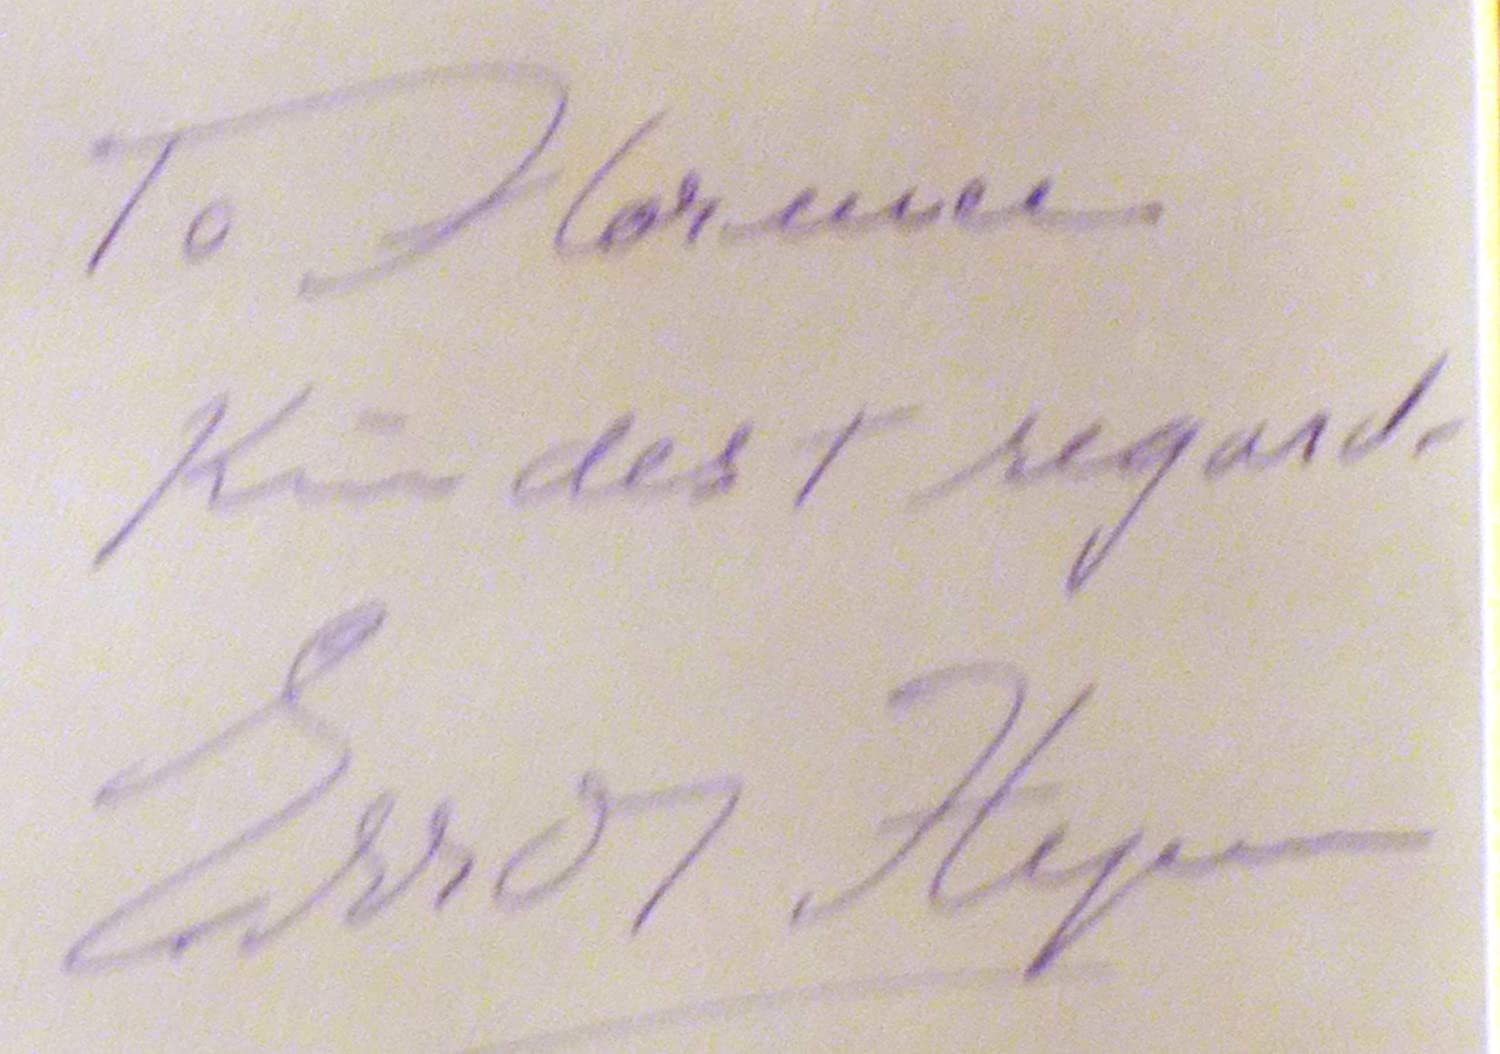 To Florence
Kindest regards
Errol Flynn